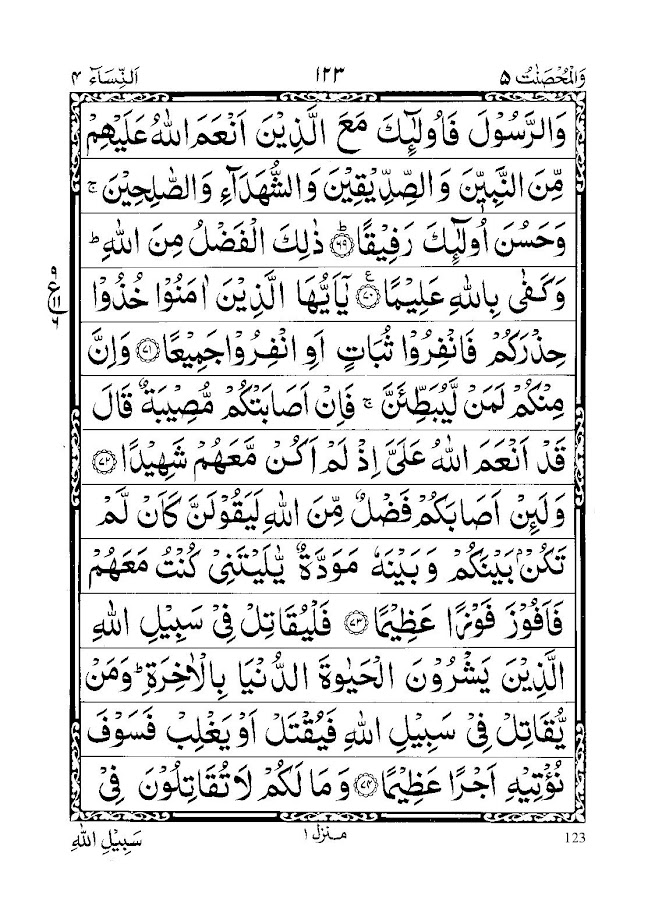 وَالۡمُحۡصَنٰتُ ٥
١٢٣
اَلنِّسَآء ٤
وَالرَّسُوۡلَ فَاُولٰٓئِكَ مَعَ الَّذِيۡنَ اَنۡعَمَ اللّٰهُ عَلَيۡهِمۡ
مِّنَ النَّبِيّٖنَ وَالصِّدِّيۡقِيۡنَ وَالشُّهَدَآءِ وَالصّٰلِحِيۡنَ ۚ
وَحَسُنَ اُولٰٓئِكَ رَفِيۡقًا ؕ‏ ﴿٦٩﴾ ذٰلِكَ الۡفَضۡلُ مِنَ اللّٰهِ ؕ
وَكَفٰى بِاللّٰهِ عَلِيۡمًا ﴿٧٠﴾ ع يٰۤاَيُّهَا الَّذِيۡنَ اٰمَنُوۡا خُذُوۡا
حِذۡرَكُمۡ فَانْفِرُوۡا ثُبَاتٍ اَوِ انْفِرُوۡا جَمِيۡعًا ﴿٧١﴾ وَاِنَّ
مِنۡكُمۡ لَمَنۡ لَّيُبَطِّئَنَّ ۚ فَاِنۡ اَصَابَتۡكُمۡ مُّصِيۡبَةٌ قَالَ
قَدۡ اَنۡعَمَ اللّٰهُ عَلَىَّ اِذۡ لَمۡ اَكُنۡ مَّعَهُمۡ شَهِيۡدًا ﴿٧٢﴾
وَلَئِنۡ اَصَابَكُمۡ فَضۡلٌ مِّنَ اللّٰهِ لَيَقُوۡلَنَّ كَاَنۡ لَّمۡ
تَكُنۡۢ بَيۡنَكُمۡ وَبَيۡنَهٗ مَوَدَّةٌ يّٰلَيۡتَنِىۡ كُنۡتُ مَعَهُمۡ
فَاَفُوۡزَ فَوۡزًا عَظِيۡمًا ﴿٧٣﴾ فَلۡيُقَاتِلۡ فِىۡ سَبِيۡلِ اللّٰهِ
الَّذِيۡنَ يَشۡرُوۡنَ الۡحَيٰوةَ الدُّنۡيَا بِالۡاٰخِرَةِ ؕ وَمَنۡ
يُّقَاتِلۡ فِىۡ سَبِيۡلِ اللّٰهِ فَيُقۡتَلۡ اَوۡ يَغۡلِبۡ فَسَوۡفَ
نُؤۡتِيۡهِ اَجۡرًا عَظِيۡمًا ﴿٧٤﴾ وَمَا لَكُمۡ لَا تُقَاتِلُوۡنَ فِىۡ
٩
ع
١١
٦
سَبِيۡلِ اللّٰهِ
منزل ١
123